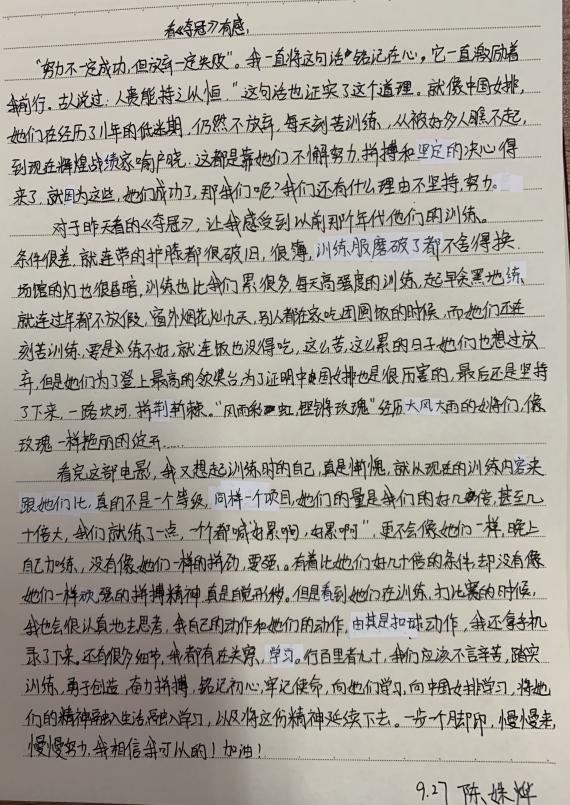 看《夺冠》有感.
"努力不一定成功,但放弃一定失败"。我一直将这句话铭记在心,它一直激励着
我前行。古人说过:人贵能持之以恒,"这句话也证实了这个道理。就像中国女排,
她们在经历了11年的低迷期,仍然不放弃,每天刻苦训练,从被好多人瞧不起,
到现在辉煌战绩家喻户晓.这都是靠她们不懈努力,拼搏和坚定的决心得
来了,就因为这些,她们成功了,那我们呢?我们还有什么理由不坚持,努力。
对于昨天看的《夺冠》,让我感受到以前那个年代他们的训练。
条件很差,就连带的护膝都很破旧,很薄,训练服磨破了都不舍得换.
场馆的灯也很昏暗,训练也比我们累很多,每天高强度的训练,起早贪黑地练
就连过年都不放假,窗外烟花灿九天,别人都在家吃团圆饭的时候,而她们还在
刻苦训练,要是练不好,就连饭也没得吃,这么苦,这么累的日子她们也想过放
弃,但是她们为了登上最高的领奖台,为了证明中国女排也是很厉害的,最后还是坚持
了下来,一路坎坷,披荆斩棘。"风雨彩虹,铿锵玫瑰"经历大风大雨的女将们,像
玫瑰一样艳丽的绽开……
看完这部电影,我又想起训练时的自己,真是惭愧,就从现在的训练内容来
跟她们比,真的不是一个等级,同样一个项目,她们的量是我们的好几倍,甚至几
十倍大,我们就练了一点,一个都喊"好累啊,好累啊",更不会像她们一样,晚上
自己加练,没有像她们一样的拼劲,要强,。有着比她们好几十倍的条件,却没有像
她们一样顽强的拼搏精神,真是自觉形秽。但是看到她们在训练,打比赛的时候,
我也会很认真地去思考,我自己的动作和她们的动作,由其是扣球动作,我还拿手机
录了下来。还有很多细节,我都有在关察,学习。行百里者九十,我们应该不言辛苦,踏实
训练,勇于创造,奋力拼搏,铭记初心,牢记使命,向她们学习,向中国女排学习,将她
们的精神融入生活,融入学习,以及将这份精神延续下去。一步一个脚印,慢慢来,
慢慢努力,我相信我可以的!加油!
9.27 陈姝烨